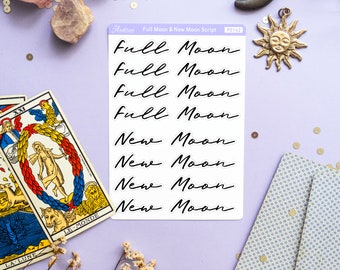 Full Moon & New Moon Script
Full Moon
Full Moon
Full Moon
Full Moon
New Moon
New Moon
New Moon
New Moon
XXI
LE MONDE
LA LUNE